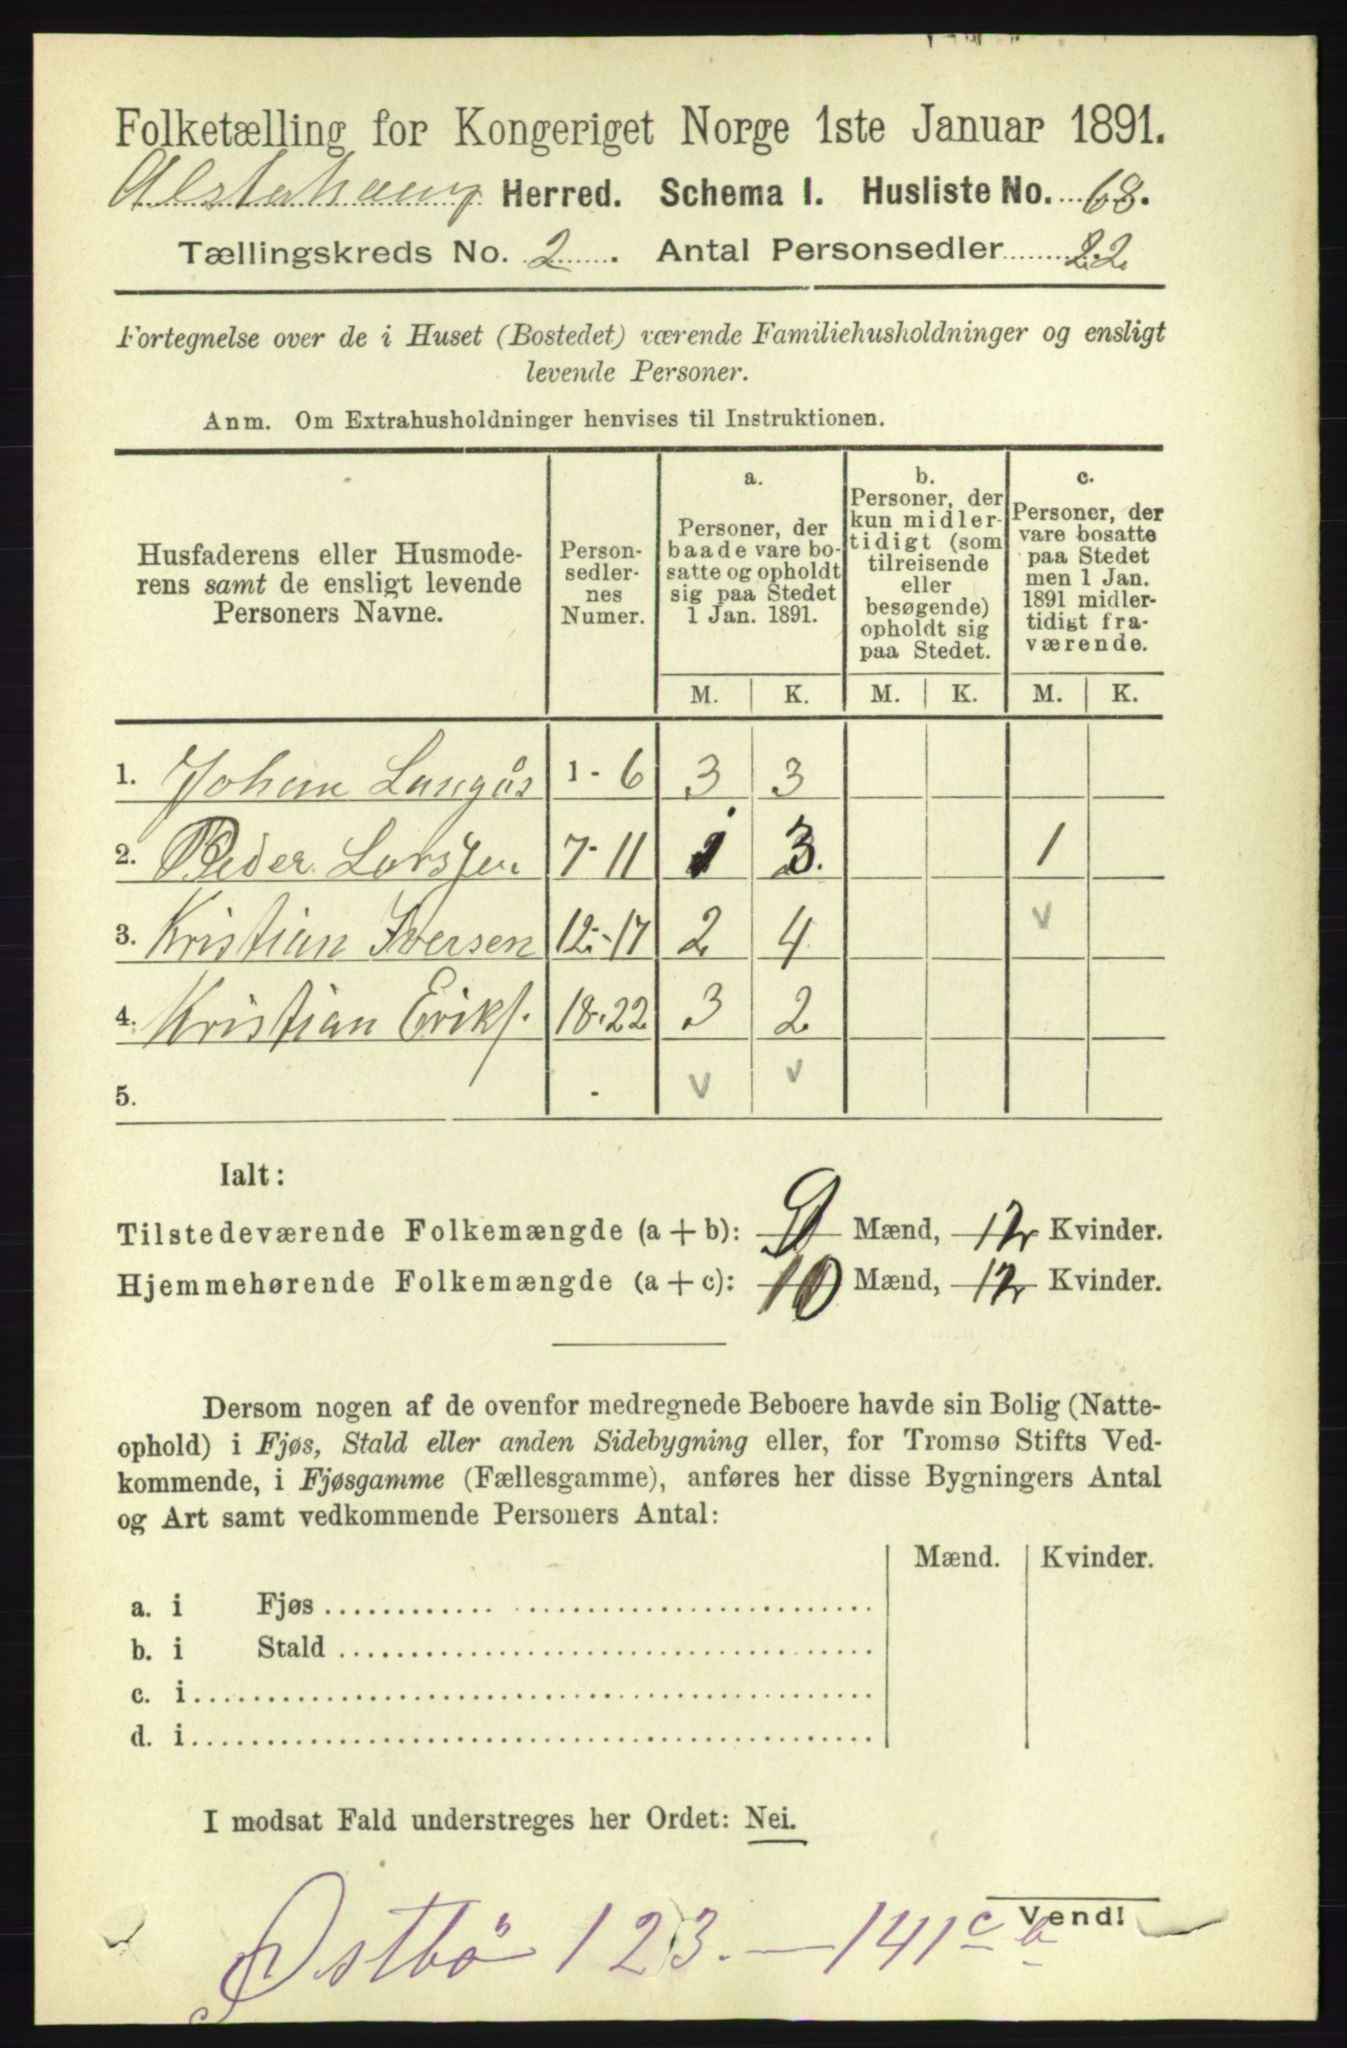 Folketælling for Kongeriget Norge 1ste Januar 1891.
Alstahaug Herred. Schema I. Husliste No. 68.
Tællingskreds No. 2. Antal Personsedler 22
Fortegnelse over de i Huset (Bostedet) værende Familiehusholdninger og ensligt
levende Personer.
Anm. Om Extrahusholdninger henvises til Instruktionen.
Husfaderens eller Husmode-
rens samt de ensligt levende
Personers Navne.
Person-
sedler-
nes
Numer.
a.
Personer, der
baade vare bo-
satte og opholdt
sig paa Stedet
1 Jan. 1891.
b.
Personer, der
kun midler-
tidigt (som
tilreisende
eller
besøgende)
opholdt sig
paa Stedet.
c.
Personer, der
vare bosatte
paa Stedet
men 1 Jan.
1891 midler-
tidigt fra-
værende.
M. K. M. K. M. K.
1. Johan Langås 1 - 6 3 3
2. Peder Larsen 7 - 11 1 3. 1
3. Kristian Iversen 12 - 17 2 4 v
4. Kristian Eriks. 18 - 22 3 2
5. - v v
Ialt:
Tilstedeværende Folkemængde (a + b): 9 Mænd, 12 Kvinder.
Hjemmehørende Folkemængde (a + c): 10 Mænd, 12 Kvinder.
Dersom nogen af de ovenfor medregnede Beboere havde sin Bolig (Natte-
ophold) i Fjøs, Stald eller anden Sidebygning eller, for Tromsø Stifts Ved-
kommende, i Fjøsgamme (Fællesgamme), anføres her disse Bygningers Antal
og Art samt vedkommende Personers Antal:
Mænd. Kvinder.
a. i Fjøs
b. i Stald
c. i
d. i
I modsat Fald understreges her Ordet: Nei.
Vend!
Østbø 123. — 141 c b